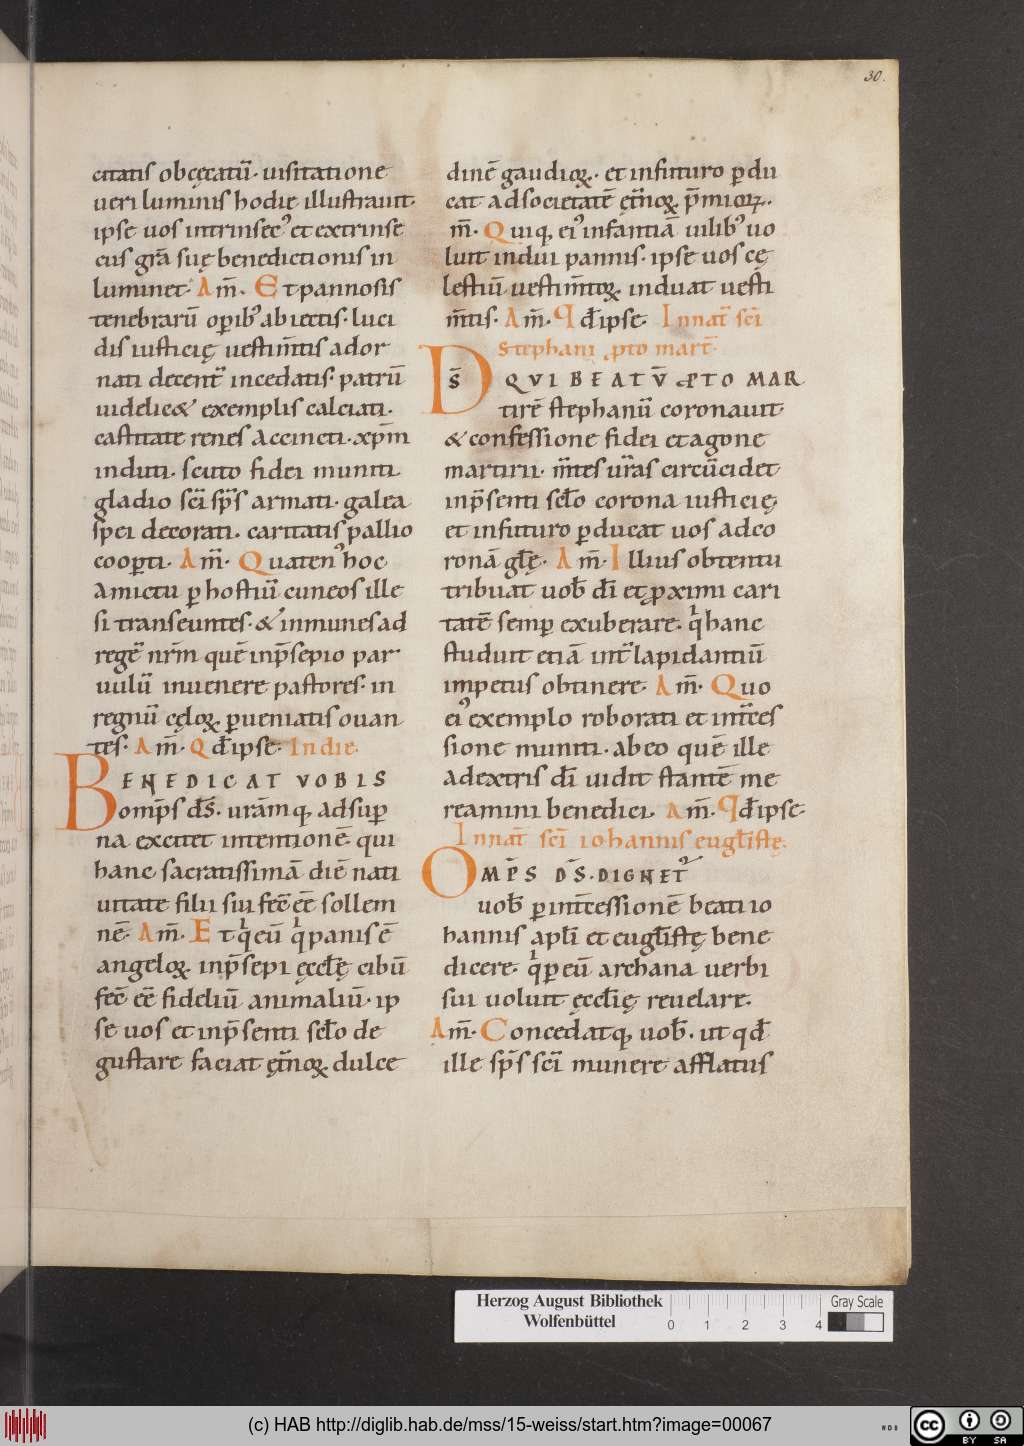 30.
citatis obcęcatū. uisitatione
ueri luminis hodie illustrauit.
ipse uos intrinsec᾽ et extrinse
cus grā suę benedictionis in
luminet. Am̄. Et pannosis
tenebrarū opib᾽ abiectis. luci
dis iusticię uestim̄tis ador
nati decent̄ incedatis. patrū
uidelic& exemplis calciati.
castitate renes accincti. xp̄m
induti. scuto fidei muniti
gladio sc̄i sp̄s armati. galea
spei decorati. caritatis pallio
coopti. Am̄. Quaten᾽ hoc
amictu p hostiū cuneos ille
si transeuntes. & inmunes ad
regē nr̄m quē inp̄sepio par
uulū inuenere pastores. in
regnū cęloꝝ pueniatis ouan
tes. Am̄. Qd̄ ipse. In die.
BENEDICAT VOBIS
omp̄s ds̄. urāmq; adsup
na excitet intentionē. qui
hanc sacratissimā diē nati
uitate filii sui fec̄ eē sollem
nē. Am̄. Et qͥ eū qͥ panis ē
angeloꝝ inp̄sepi ęccłę cibū
fec̄ eē fideliū animaliū. ip
se uos et inp̄senti scło de
gustare faciat ęt̄noꝝ dulce
dinē gaudioꝝ. et infuturo pdu
cat ad societatē ęt̄noꝝ p̄mioꝝ.
m̄. Quiq; ei᾽ infantiā uilib᾽ uo
luit indui pannis. ipse uos cę
lestiū uestim̄toꝝ induat uesti
m̄tis. Am̄. Qd̄ ipse. In nat̄ sc̄i
Stephani ꝓto mart̄.
DS̄ QVI BEATV̄ ꝒTO MAR
tirē stephanū coronauit.
& confessione fidei et agone
martirii. m̄tes ur̄as circūcidet
inp̄senti scło corona iusticię
et infuturo pducat uos ad co
ronā gl̄ę. Am̄. Illius obtentu
tribuat uob̄ dī et ꝓximi cari
tatē semp exuberare. qͥ hanc
studuit etiā int̄ lapidantiū
impetus obtinere. Am̄. Quo
ei᾽ exemplo roborati et int̄ces
sione muniti. ab eo quē ille
adextris dī uidit stantē me
reamini benedici. Am̄. Qd̄ ipse.
In nat̄ sc̄i iohannis eugl̄istę.
OMP̄S DS̄. DIGNET᾽
uob̄ pint̄cessionē beati io
hannis apli et eugl̄istę bene
dicere. qͥ p eū archana uerbi
sui uoluit ęccłię reuelare.
Am̄. Concedatq; uob̄. ut qd̄
ille sp̄s sc̄i munere afflatus
Herzog August Bibliothek
Wolfenbüttel
0 1 2 3 4
Gray Scale
(c) HAB http://diglib.hab.de/mss/15-weiss/start.htm?image=00067
cc BY SA